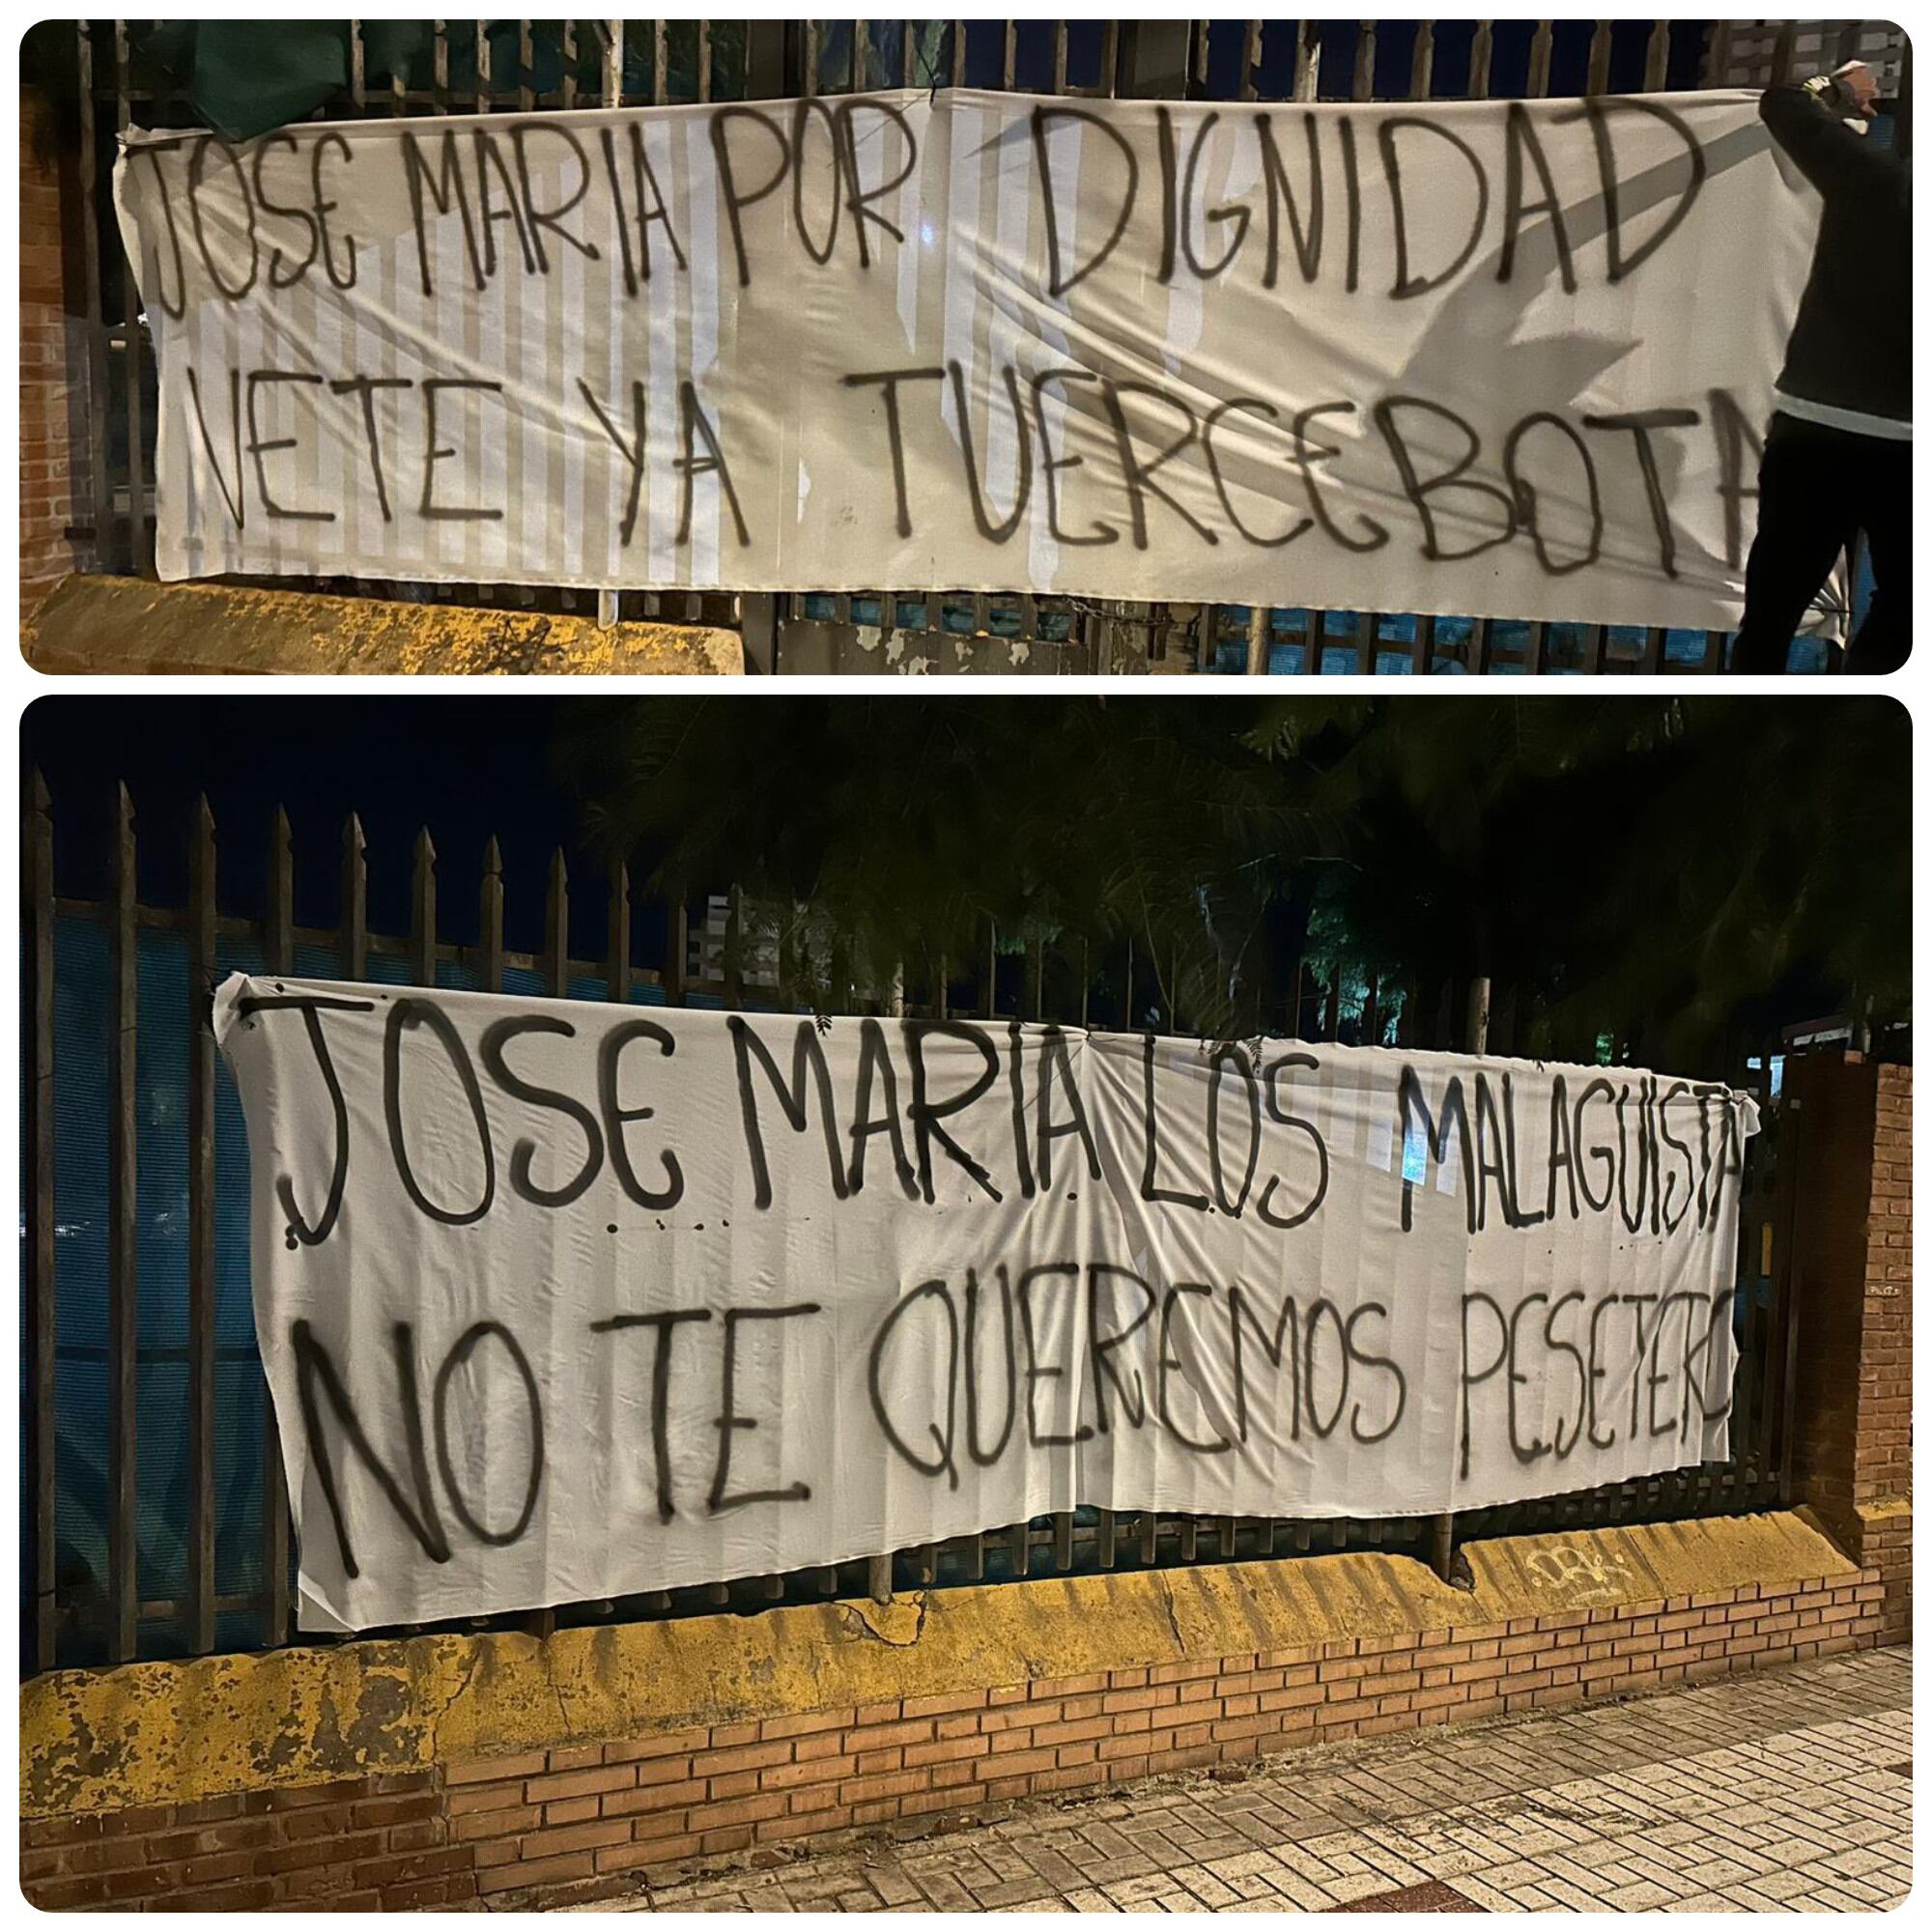 JOSE MARIA POR DIGNIDAD
VETE YA TUERCEBOTA
JOSE MARIA LOS MALAGUISTA
NO TE QUEREMOS PESETERO